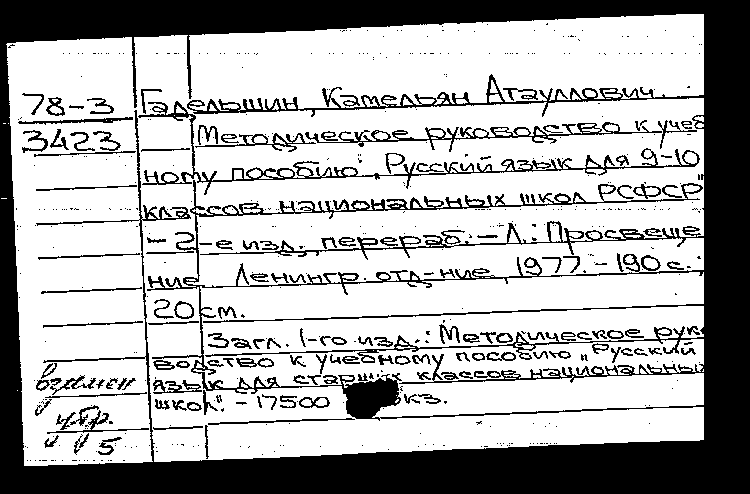 78-3 Гадельшин, Камельян Атауллович.
3423 Методическое руководство к учеб
ному пособию „Русский язык для 9-10
классов национальных школ РСФСР"
- 2-е изд., перераб. - Л.: Просвеще
ние. Ленингр. отд-ние, 1977. - 190 с.;
20 см.
Загл. 1-го изд.: Методическое рук
водство к учебному пособию „Русский
язык для старших классов национальны
школ". - 17500 экз.
взамен
5